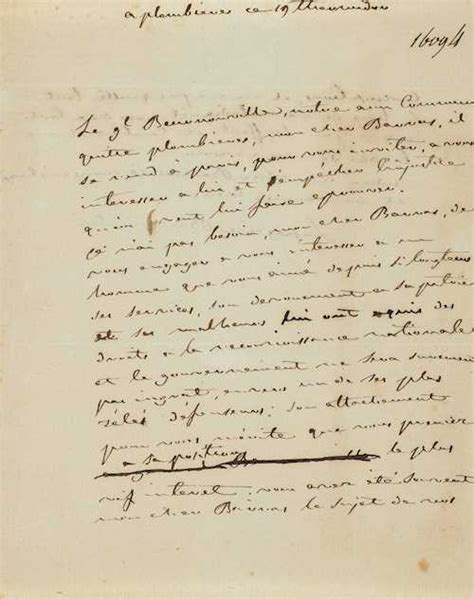 a plombieres ce 19 thermidor
16094
Le gl Beurnonville, notre ami Commun
quitte plombieres, mon cher Barras, il
se rend a paris, pour vous inviter, a vous
interesser a lui et d'empecher l'injustice
qu'on veut lui faire eprouver.
je n'ai pas besoin, mon cher Barras, de
vous engager a vous interesser a un
homme que vous aimé depuis si longtems
ses services, son devouement en sa patrie
et ses malheurs lui ont aquis des
droits a la reconnoissance nationale
et le gouvernement ne sera surement
pas ingrat, envers un de ses plus
zélés défenseurs; son attachement
pour vous mérite que vous preniez
a sa position
le plus
vif interet. vous avez été souvent
mon cher Barras le sujet de nos